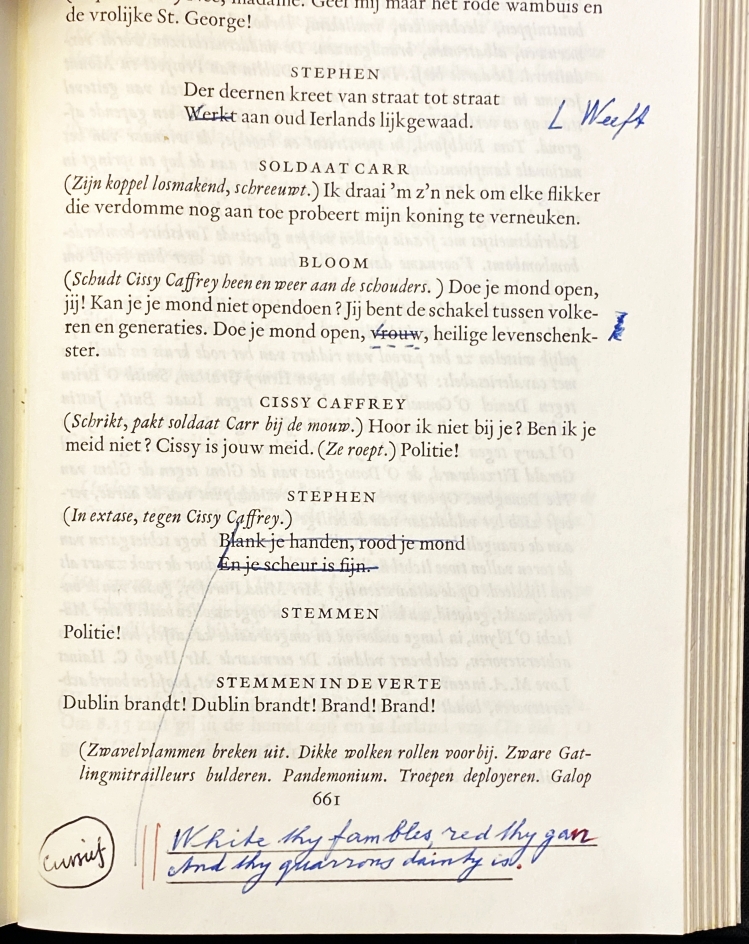 madame. Geef mij maar het rode wambuis en
de vrolijke St. George!
STEPHEN
Der deernen kreet van straat tot straat
Werkt aan oud Ierlands lijkgewaad.
L Weeft
SOLDAAT CARR
(Zijn koppel losmakend, schreeuwt.) Ik draai ’m z’n nek om elke flikker
die verdomme nog aan toe probeert mijn koning te verneuken.
BLOOM
(Schudt Cissy Caffrey heen en weer aan de schouders. ) Doe je mond open,
jij! Kan je je mond niet opendoen? Jij bent de schakel tussen volke-
ren en generaties. Doe je mond open, vrouw, heilige levenschenk-
ster.
CISSY CAFFREY
(Schrikt, pakt soldaat Carr bij de mouw.) Hoor ik niet bij je? Ben ik je
meid niet? Cissy is jouw meid. (Ze roept.) Politie!
STEPHEN
(In extase, tegen Cissy Caffrey.)
Blank je handen, rood je mond
En je scheur is fijn.
STEMMEN
Politie!
STEMMEN IN DE VERTE
Dublin brandt! Dublin brandt! Brand! Brand!
(Zwavelvlammen breken uit. Dikke wolken rollen voorbij. Zware Gat-
lingmitrailleurs bulderen. Pandemonium. Troepen deployeren. Galop
661
cursief
White thy fambles, red thy gan
And thy quarrons dainty is.